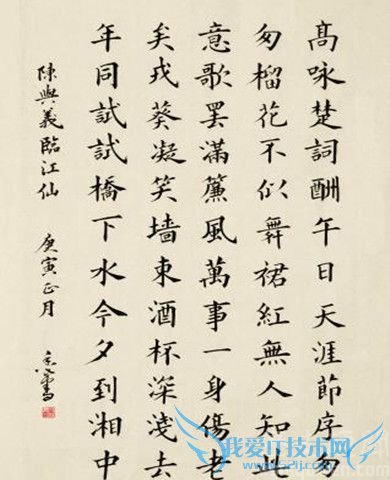 髙詠楚詞酬午日天涯節序匆
匆榴花不似舞裙紅無人知此
意歌罷滿簾風萬事一身傷老
矣戎葵凝笑墙東酒杯深淺去
年同試試橋下水今夕到湘中
陳與義臨江仙 庚寅正月
我爱IT技术网